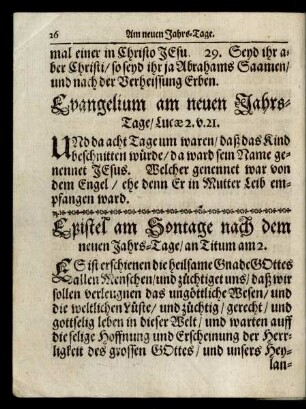 26 Am neuen Jahrs-Tage.
mal einer in Christo JEsu. 29. Seyd ihr a-
ber Christi/ so seyd ihr ja Abrahams Saamen/
und nach der Verheissung Erben.
Evangelium am neuen Jahrs-
Tage/ Lucæ 2. v. 21.
UNd da acht Tage um waren/ daß das Kind
beschnitten würde/ da ward sein Name ge-
nennet JEsus. Welcher genennet war von
dem Engel/ ehe denn Er in Mutter Leib em-
pfangen ward.
Epistel am Sontage nach dem
neuen Jahrs-Tage/ an Titum am 2.
ES ist erschienen die heilsame Gnade GOttes
allen Menschen/ und züchtiget uns/ daß wir
sollen verleugnen das ungöttliche Wesen/ und
die weltlichen Lüste/ und züchtig/ gerecht/ und
gottselig leben in dieser Welt/ und warten auff
die selige Hoffnung und Erscheinung der Herr-
ligkeit des grossen GOttes/ und unsers Hey-
lan-